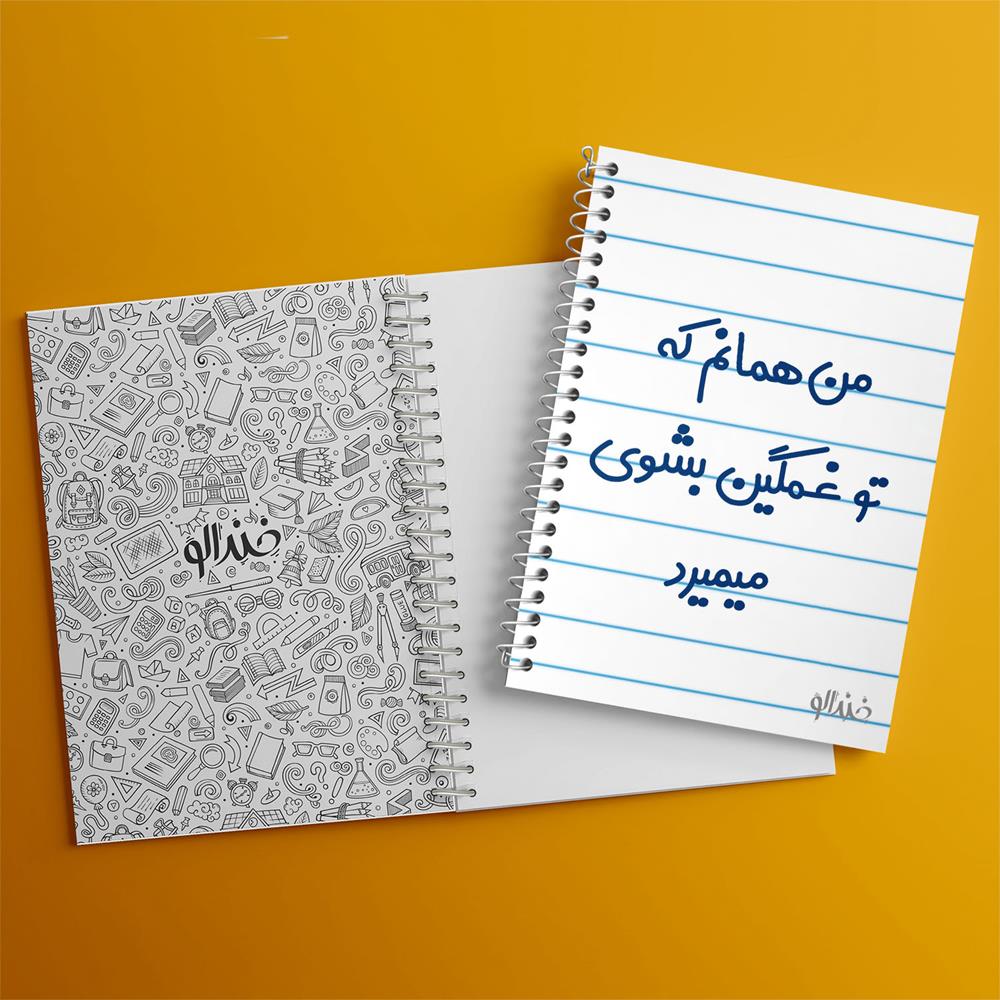 من همانم که
تو غمگین بشوی
میمیرد
خندالو
خندالو